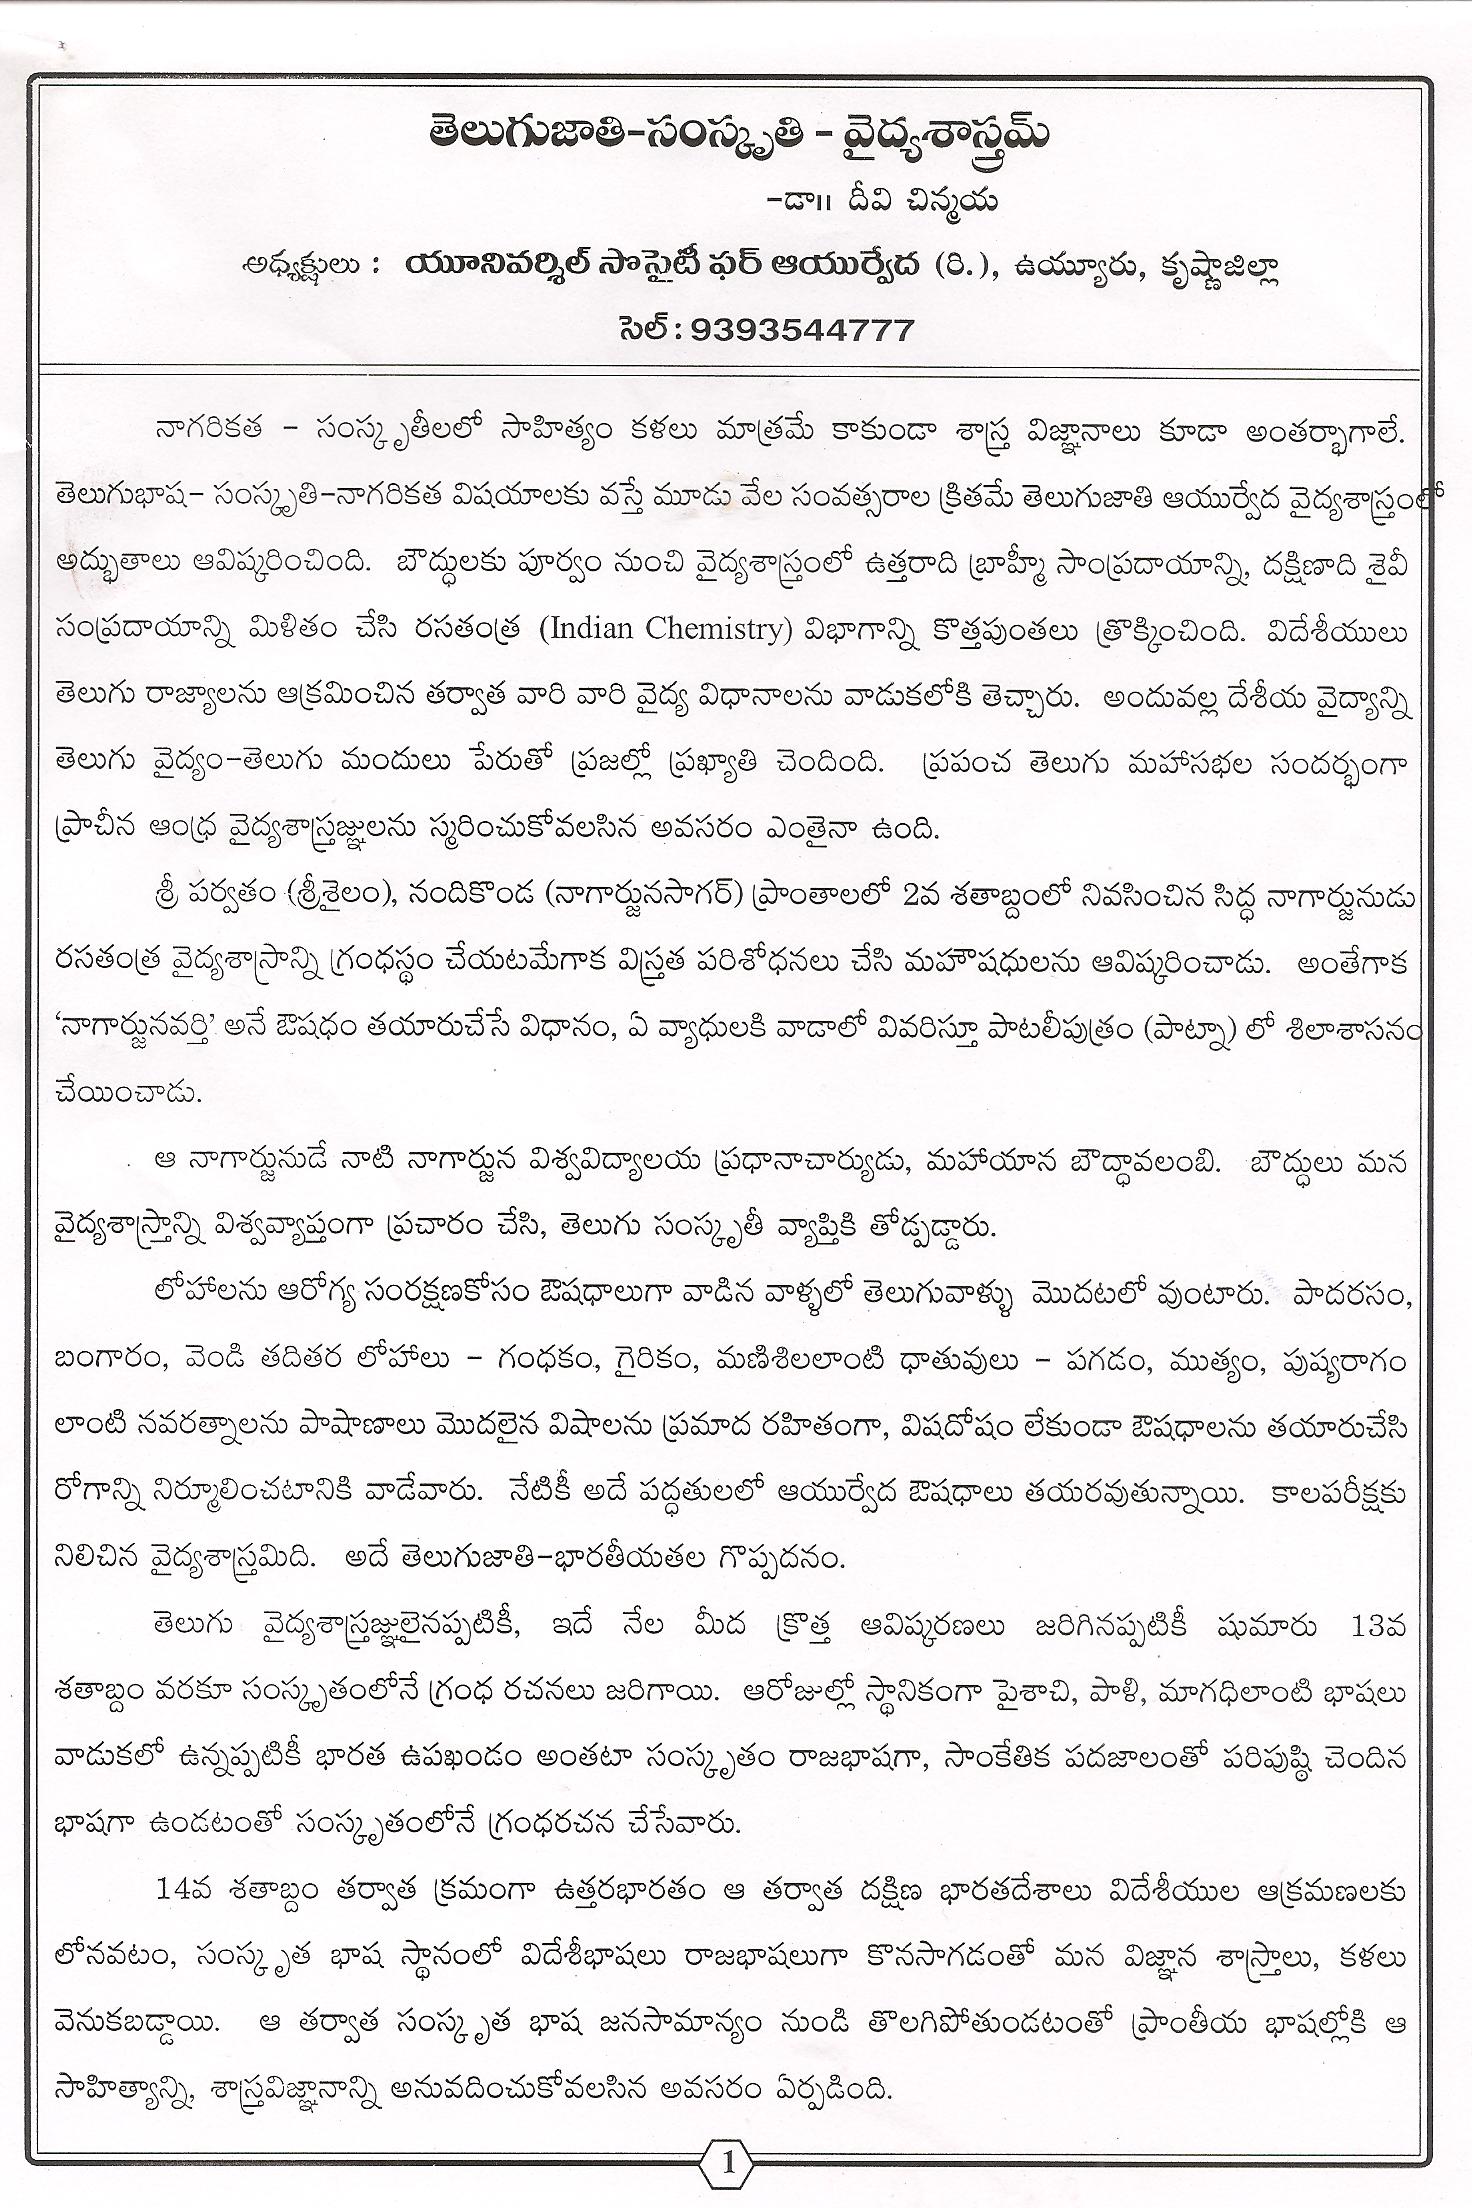 తెలుగుజాతి-సంస్కృతి - వైద్యశాస్త్రమ్
-డా॥ దీవి చిన్మయ
అధ్యక్షులు : యూనివర్శిల్ సొసైటీ ఫర్ ఆయుర్వేద (రి.), ఉయ్యూరు, కృష్ణాజిల్లా
సెల్ : 9393544777
నాగరికత - సంస్కృతీలలో సాహిత్యం కళలు మాత్రమే కాకుండా శాస్త్ర విజ్ఞానాలు కూడా అంతర్భాగాలే.
తెలుగుభాష- సంస్కృతి-నాగరికత విషయాలకు వస్తే మూడు వేల సంవత్సరాల క్రితమే తెలుగుజాతి ఆయుర్వేద వైద్యశాస్త్రంలో
అద్భుతాలు ఆవిష్కరించింది. బౌద్ధులకు పూర్వం నుంచి వైద్యశాస్త్రంలో ఉత్తరాది బ్రాహ్మీ సాంప్రదాయాన్ని, దక్షిణాది శైవీ
సంప్రదాయాన్ని మిళితం చేసి రసతంత్ర (Indian Chemistry) విభాగాన్ని కొత్తపుంతలు త్రొక్కించింది. విదేశీయులు
తెలుగు రాజ్యాలను ఆక్రమించిన తర్వాత వారి వారి వైద్య విధానాలను వాడుకలోకి తెచ్చారు. అందువల్ల దేశీయ వైద్యాన్ని
తెలుగు వైద్యం-తెలుగు మందులు పేరుతో ప్రజల్లో ప్రఖ్యాతి చెందింది. ప్రపంచ తెలుగు మహాసభల సందర్భంగా
ప్రాచీన ఆంధ్ర వైద్యశాస్త్రజ్ఞులను స్మరించుకోవలసిన అవసరం ఎంతైనా ఉంది.
శ్రీ పర్వతం (శ్రీశైలం), నందికొండ (నాగార్జునసాగర్) ప్రాంతాలలో 2వ శతాబ్దంలో నివసించిన సిద్ధ నాగార్జునుడు
రసతంత్ర వైద్యశాస్రాన్ని గ్రంధస్థం చేయటమేగాక విస్త్రత పరిశోధనలు చేసి మహౌషధులను ఆవిష్కరించాడు. అంతేగాక
'నాగార్జునవర్తి' అనే ఔషధం తయారుచేసే విధానం, ఏ వ్యాధులకి వాడాలో వివరిస్తూ పాటలీపుత్రం (పాట్నా) లో శిలాశాసనం
చేయించాడు.
ఆ నాగార్జునుడే నాటి నాగార్జున విశ్వవిద్యాలయ ప్రధానాచార్యుడు, మహాయాన బౌద్ధావలంబి. బౌద్ధులు మన
వైద్యశాస్త్రాన్ని విశ్వవ్యాప్తంగా ప్రచారం చేసి, తెలుగు సంస్కృతీ వ్యాప్తికి తోడ్పడ్డారు.
లోహాలను ఆరోగ్య సంరక్షణకోసం ఔషధాలుగా వాడిన వాళ్ళలో తెలుగువాళ్ళు మొదటలో వుంటారు. పాదరసం,
బంగారం, వెండి తదితర లోహాలు - గంధకం, గైరికం, మణిశిలలాంటి ధాతువులు - పగడం, ముత్యం, పుష్యరాగం
లాంటి నవరత్నాలను పాషాణాలు మొదలైన విషాలను ప్రమాద రహితంగా, విషదోషం లేకుండా ఔషధాలను తయారుచేసి
రోగాన్ని నిర్మూలించటానికి వాడేవారు. నేటికీ అదే పద్ధతులలో ఆయుర్వేద ఔషధాలు తయరవుతున్నాయి. కాలపరీక్షకు
నిలిచిన వైద్యశాస్త్రమిది. అదే తెలుగుజాతి-భారతీయతల గొప్పదనం.
తెలుగు వైద్యశాస్త్రజ్ఞులైనప్పటికీ, ఇదే నేల మీద క్రొత్త ఆవిష్కరణలు జరిగినప్పటికీ షుమారు 13వ
శతాబ్దం వరకూ సంస్కృతంలోనే గ్రంధ రచనలు జరిగాయి. ఆరోజుల్లో స్థానికంగా పైశాచి, పాళి, మాగధిలాంటి భాషలు
వాడుకలో ఉన్నప్పటికీ భారత ఉపఖండం అంతటా సంస్కృతం రాజభాషగా, సాంకేతిక పదజాలంతో పరిపుష్ఠి చెందిన
భాషగా ఉండటంతో సంస్కృతంలోనే గ్రంధరచన చేసేవారు.
14వ శతాబ్దం తర్వాత క్రమంగా ఉత్తరభారతం ఆ తర్వాత దక్షిణ భారతదేశాలు విదేశీయుల ఆక్రమణలకు
లోనవటం, సంస్కృత భాష స్థానంలో విదేశీభాషలు రాజభాషలుగా కొనసాగడంతో మన విజ్ఞాన శాస్త్రాలు, కళలు
వెనుకబడ్డాయి. ఆ తర్వాత సంస్కృత భాష జనసామాన్యం నుండి తొలగిపోతుండటంతో ప్రాంతీయ భాషల్లోకి ఆ
సాహిత్యాన్ని, శాస్త్రవిజ్ఞానాన్ని అనువదించుకోవలసిన అవసరం ఏర్పడింది.
1